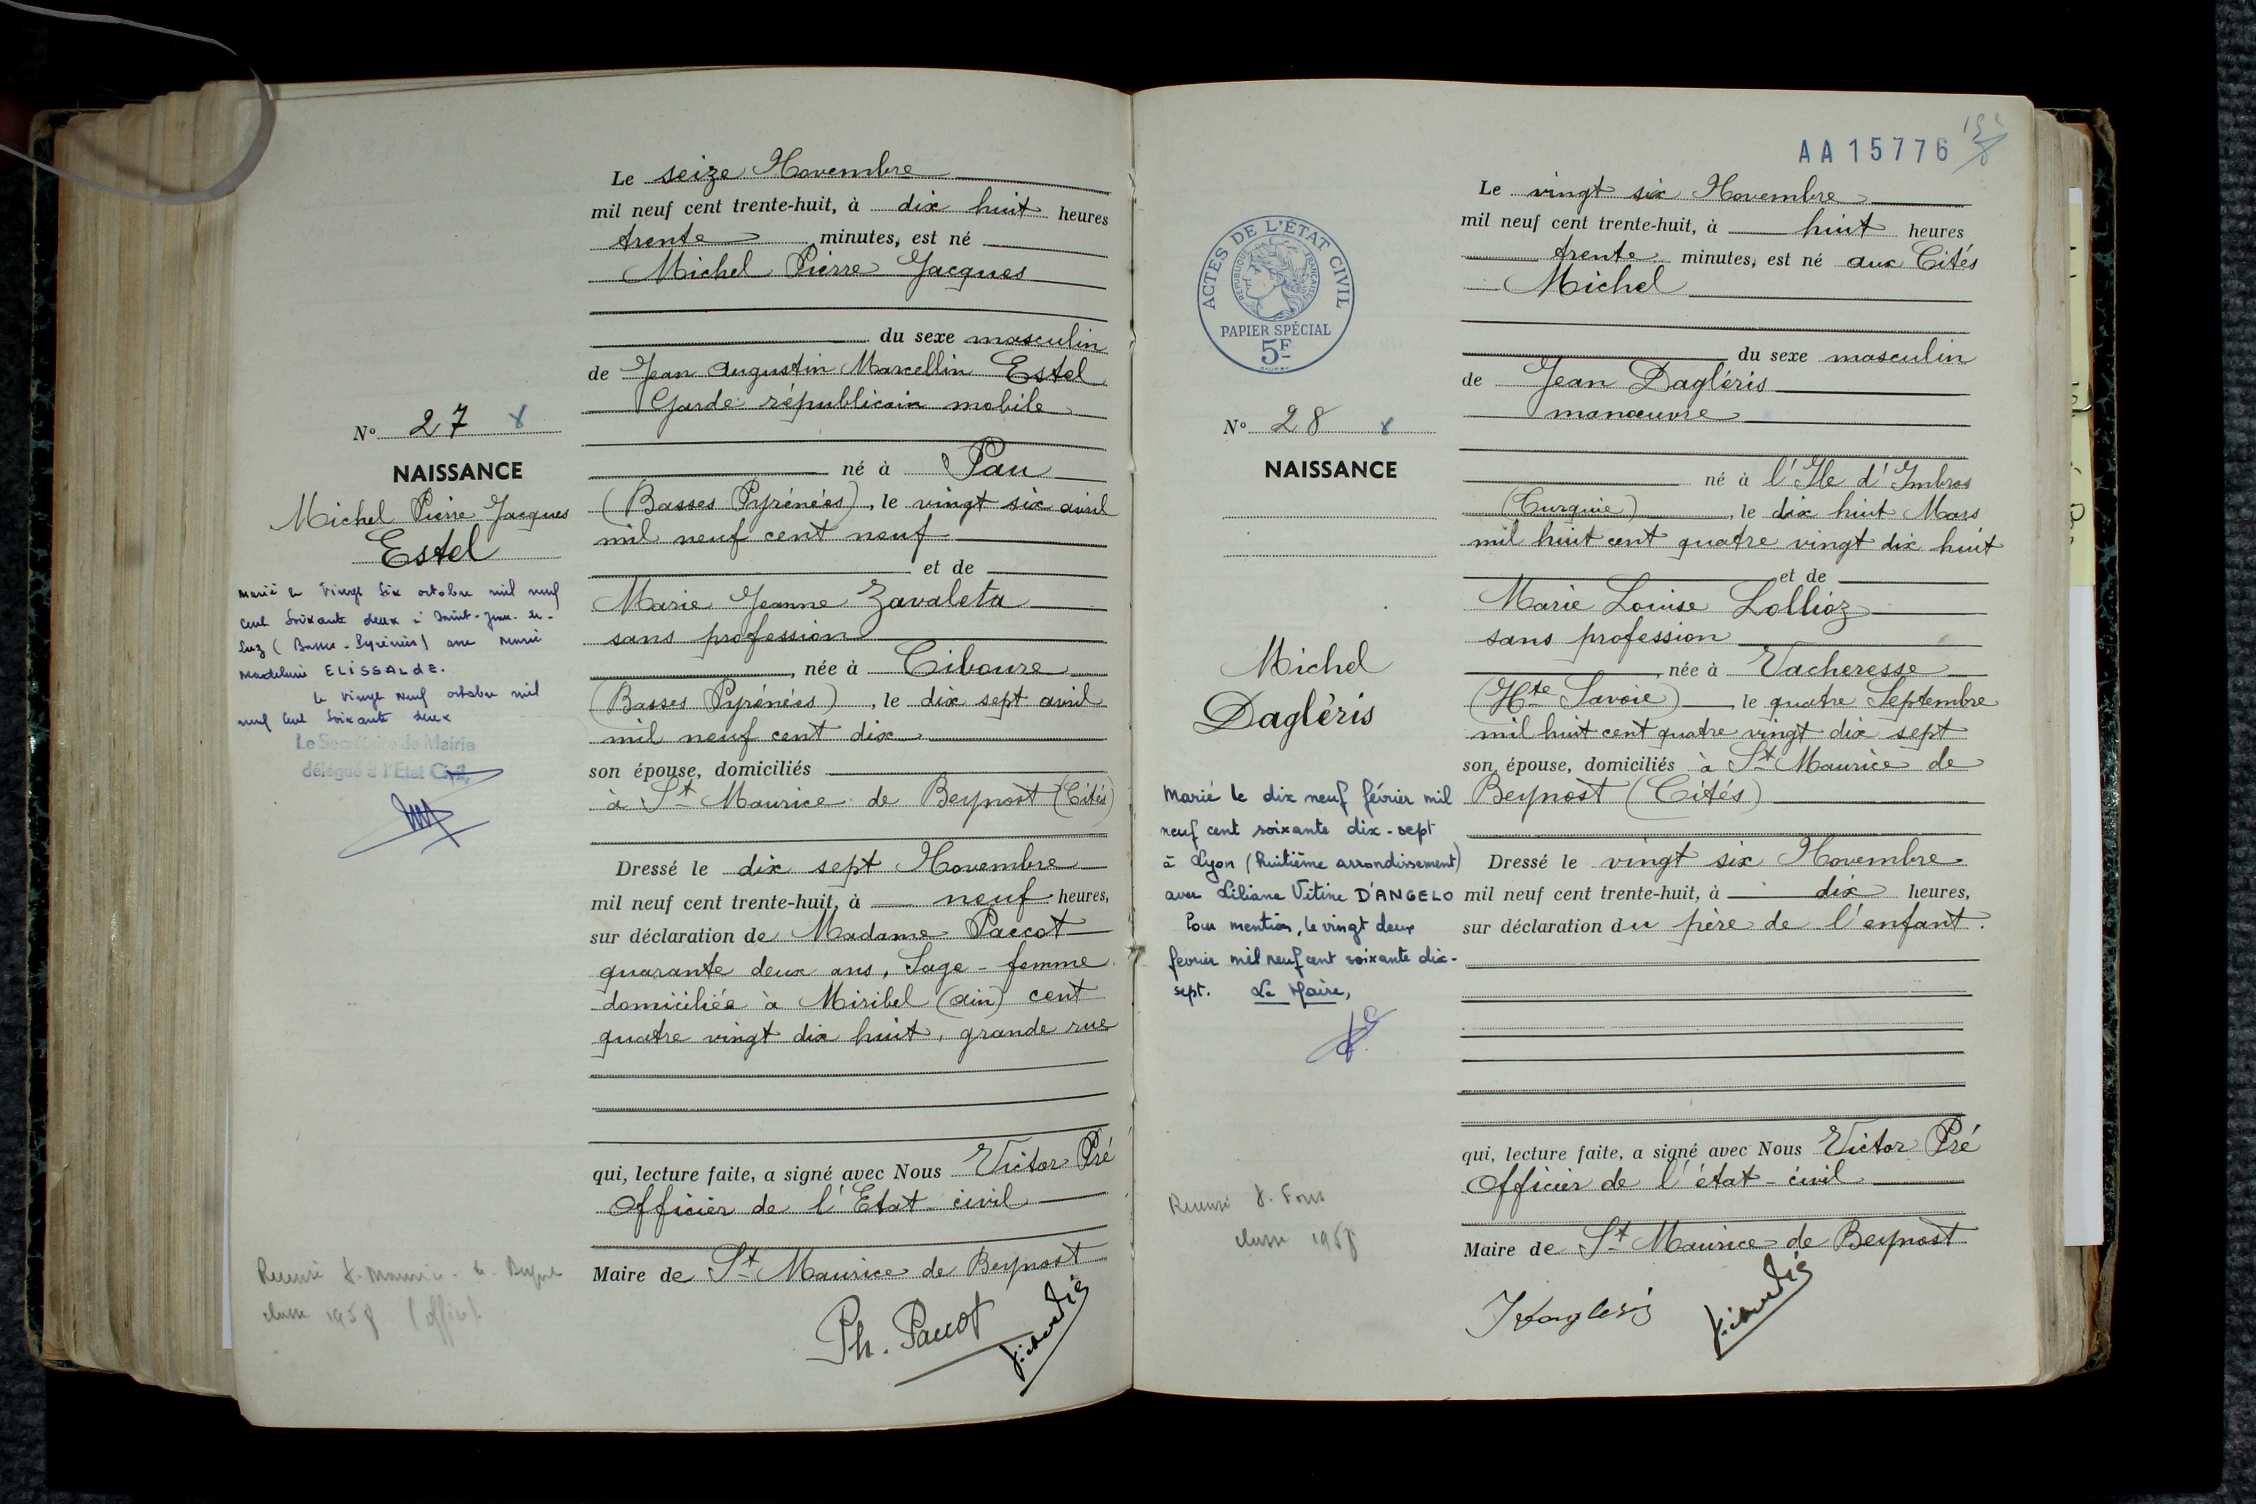 Le seize Novembre
mil neuf cent trente-huit, à dix huit heures
trente minutes, est né
Michel Pierre Jacques
du sexe masculin
de Jean Augustin Marcellin Estel
Garde républicain mobile
né à Pau
(Basses Pyrénées), le vingt six avril
mil neuf cent neuf
et de
Marie Jeanne Zavaleta
sans profession
, née à Ciboure
(Basses Pyrénées), le dix sept avril
mil neuf cent dix
son épouse, domiciliés
à St Maurice de Beynost (Cités)
Dressé le dix sept Novembre
mil neuf cent trente-huit, à neuf heures,
sur déclaration de Madame Paccot
quarante deux ans, Sage-femme
domiciliée à Miribel (Ain) cent
quatre vingt dix huit, grande rue
qui, lecture faite, a signé avec Nous Victor Pré
Officier de l'Etat-civil
Maire de St Maurice de Beynost
Ph. Paccot
No 27
NAISSANCE
Michel Pierre Jacques
Estel
Marié le vingt six octobre mil neuf
cent soixante deux à Saint-Jean-de-
Luz (Basses-Pyrénées) avec Marie
Madeleine ELISSALDE.
Le vingt neuf octobre mil
neuf cent soixante deux
Le Secrétaire de Mairie
délégué à l'Etat Civil,
classe 1958
AA15776
ACTES DE L'ÉTAT CIVIL
RÉPUBLIQUE FRANÇAISE
PAPIER SPÉCIAL
5F
No 28
NAISSANCE
Michel
Dagléris
Marié le dix neuf février mil
neuf cent soixante dix-sept
à Lyon (huitième arrondissement)
avec Liliane Vitine D'ANGELO
Pour mention, le vingt deux
février mil neuf cent soixante dix-
sept. Le Maire,
classe 1958
Le vingt six Novembre
mil neuf cent trente-huit, à huit heures
trente minutes, est né aux Cités
Michel
du sexe masculin
de Jean Dagléris
manœuvre
né à l'Ile d'Imbros
(Turquie), le dix huit Mars
mil huit cent quatre vingt dix huit
et de
Marie Louise Lollioz
sans profession
, née à Vacheresse
(Hte Savoie), le quatre Septembre
mil huit cent quatre vingt dix sept
son épouse, domiciliés à St Maurice de
Beynost (Cités)
Dressé le vingt six Novembre
mil neuf cent trente-huit, à dix heures,
sur déclaration du père de l'enfant.
qui, lecture faite, a signé avec Nous Victor Pré
Officier de l'état-civil
Maire de St Maurice de Beynost